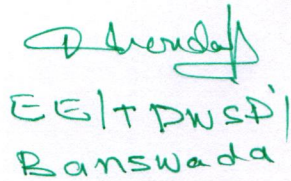 EE/TDWSP/
Banswada